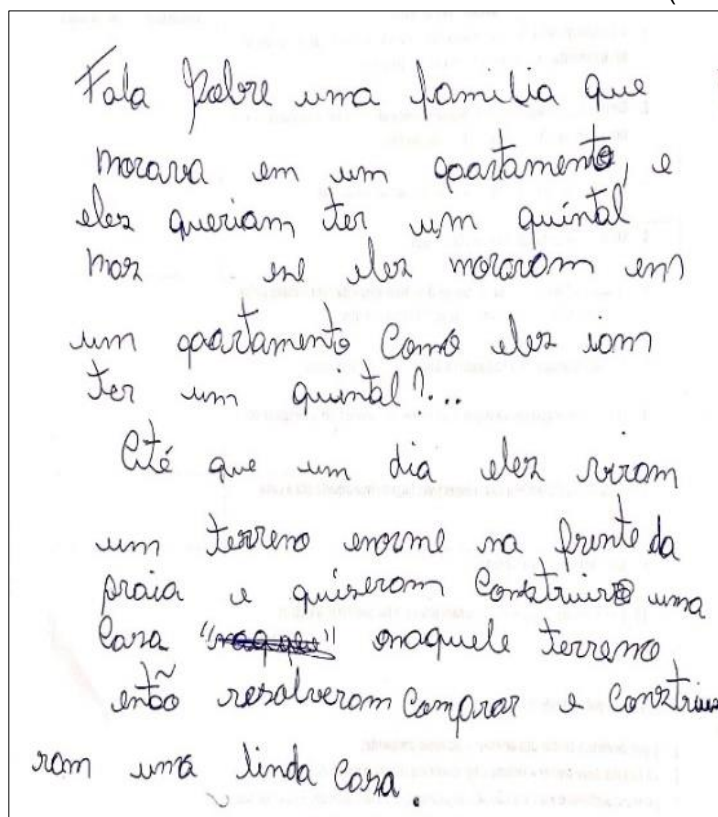 Fala sobre uma familia que
morava em um apartamento, e
eles queriam ter um quintal
mas ese eles moravam em
um apartamento Como eles iam
ter um quintal?...
Até que um dia eles viram
um terreno enorme na frente da
praia e quiseram Construir uma
Casa "naquele" naquele terreno
então resolveram Comprar e Construi
ram uma linda Casa.